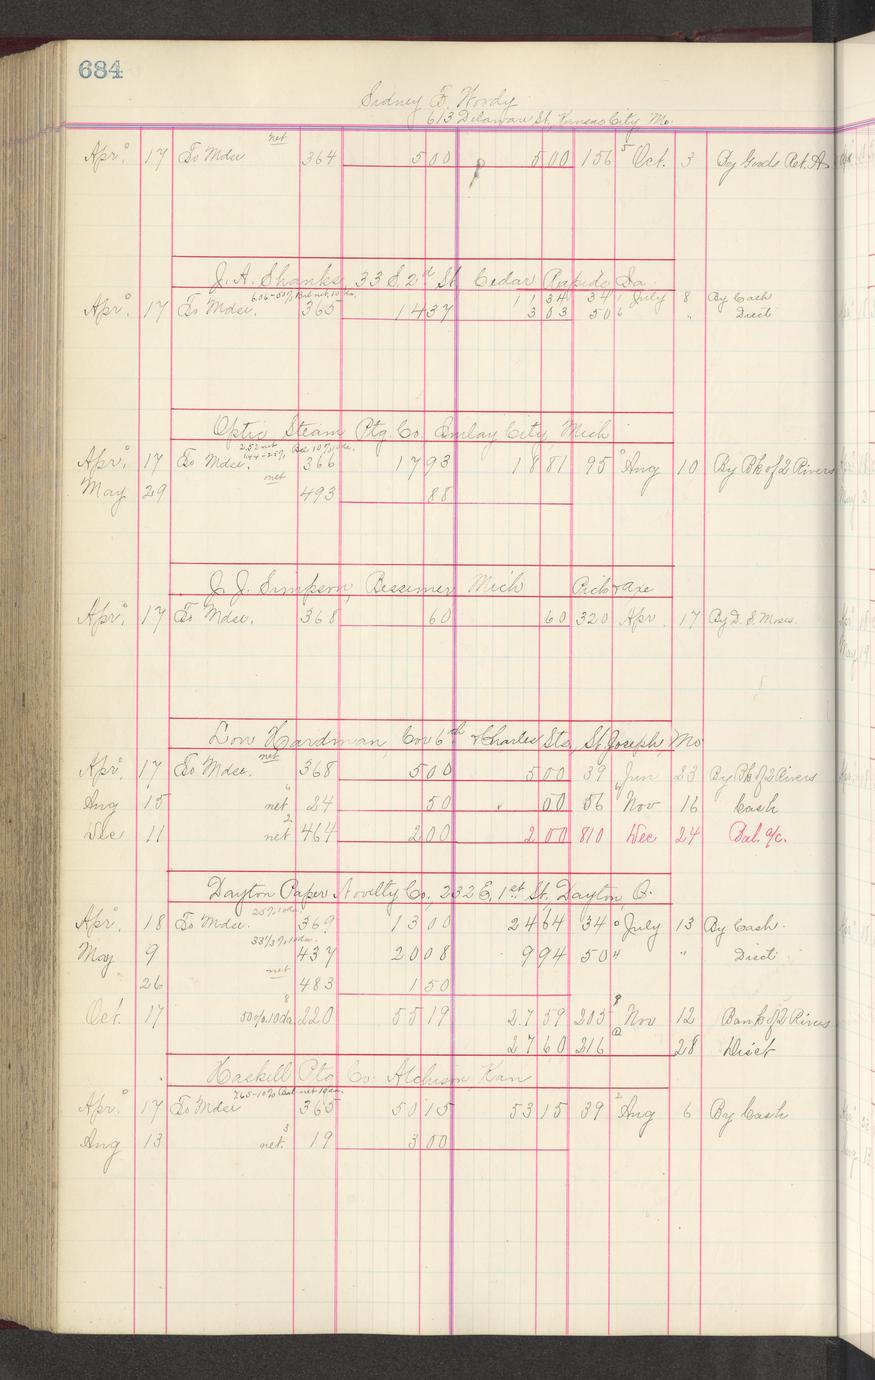 684
Sidney F. Woody
613 Delaware St, Kansas City Mo.
net
Apr. 17 To Mdse 364 5 00 5 00 156 5 Oct. 3 By Goods Ret.
J. A. Shanks, 33 S. 2d St. Cedar Rapids Ia.
6.06-50% Bal net, 10 da.
Apr. 17 To Mdse. 365 14 37 11 34 34 July 8 By Cash
3 03 50 6 " Disct
Optic Steam Ptg. Co. Imlay City, Mich
2.52 net Bal 10% 10 da.
1.44-25%
Apr. 17 To Mdse. 366 17 93 18 81 95 Aug 10 By Bk of 2 Rivers
net
May 29 493 88
J. J. Simpson, Bessemer Mich Pick & Axe
Apr. 17 To Mdse. 368 60 60 320 Apr. 17 By D. S. Moses.
Lon Hardman, Cor 6th & Charles Sts, St. Joseph, Mo
net
Apr. 17 To Mdse. 368 5 00 5 00 39 Jun 23 By Bk of 2 Rivers
Aug 15 net 24 50 50 56 Nov 16 Cash
Dec 11 net 2 464 2 00 2 00 810 Dec 24 Bal. a/c.
Dayton Paper Novelty Co., 232 E. 1st St, Dayton, O.
25% 10 da.
Apr. 18 To Mdse. 369 13 00 24 64 34 July 13 By Cash.
33 1/3% 10 da.
May 9 437 20 08 9 94 50 " " Disct
net
" 26 483 1 50
Oct. 17 50% 10 da 8 220 55 19 27 59 205 8 Nov 12 Bank of 2 Rivers
27 60 216 28 Disct
Haskell Ptg Co. Atchison, Kan
7.65-10% Bal net 10 da.
Apr. 17 To Mdse 365 50 15 53 15 39 2 Aug 6 By Cash
Aug 13 net. 3 19 3 00